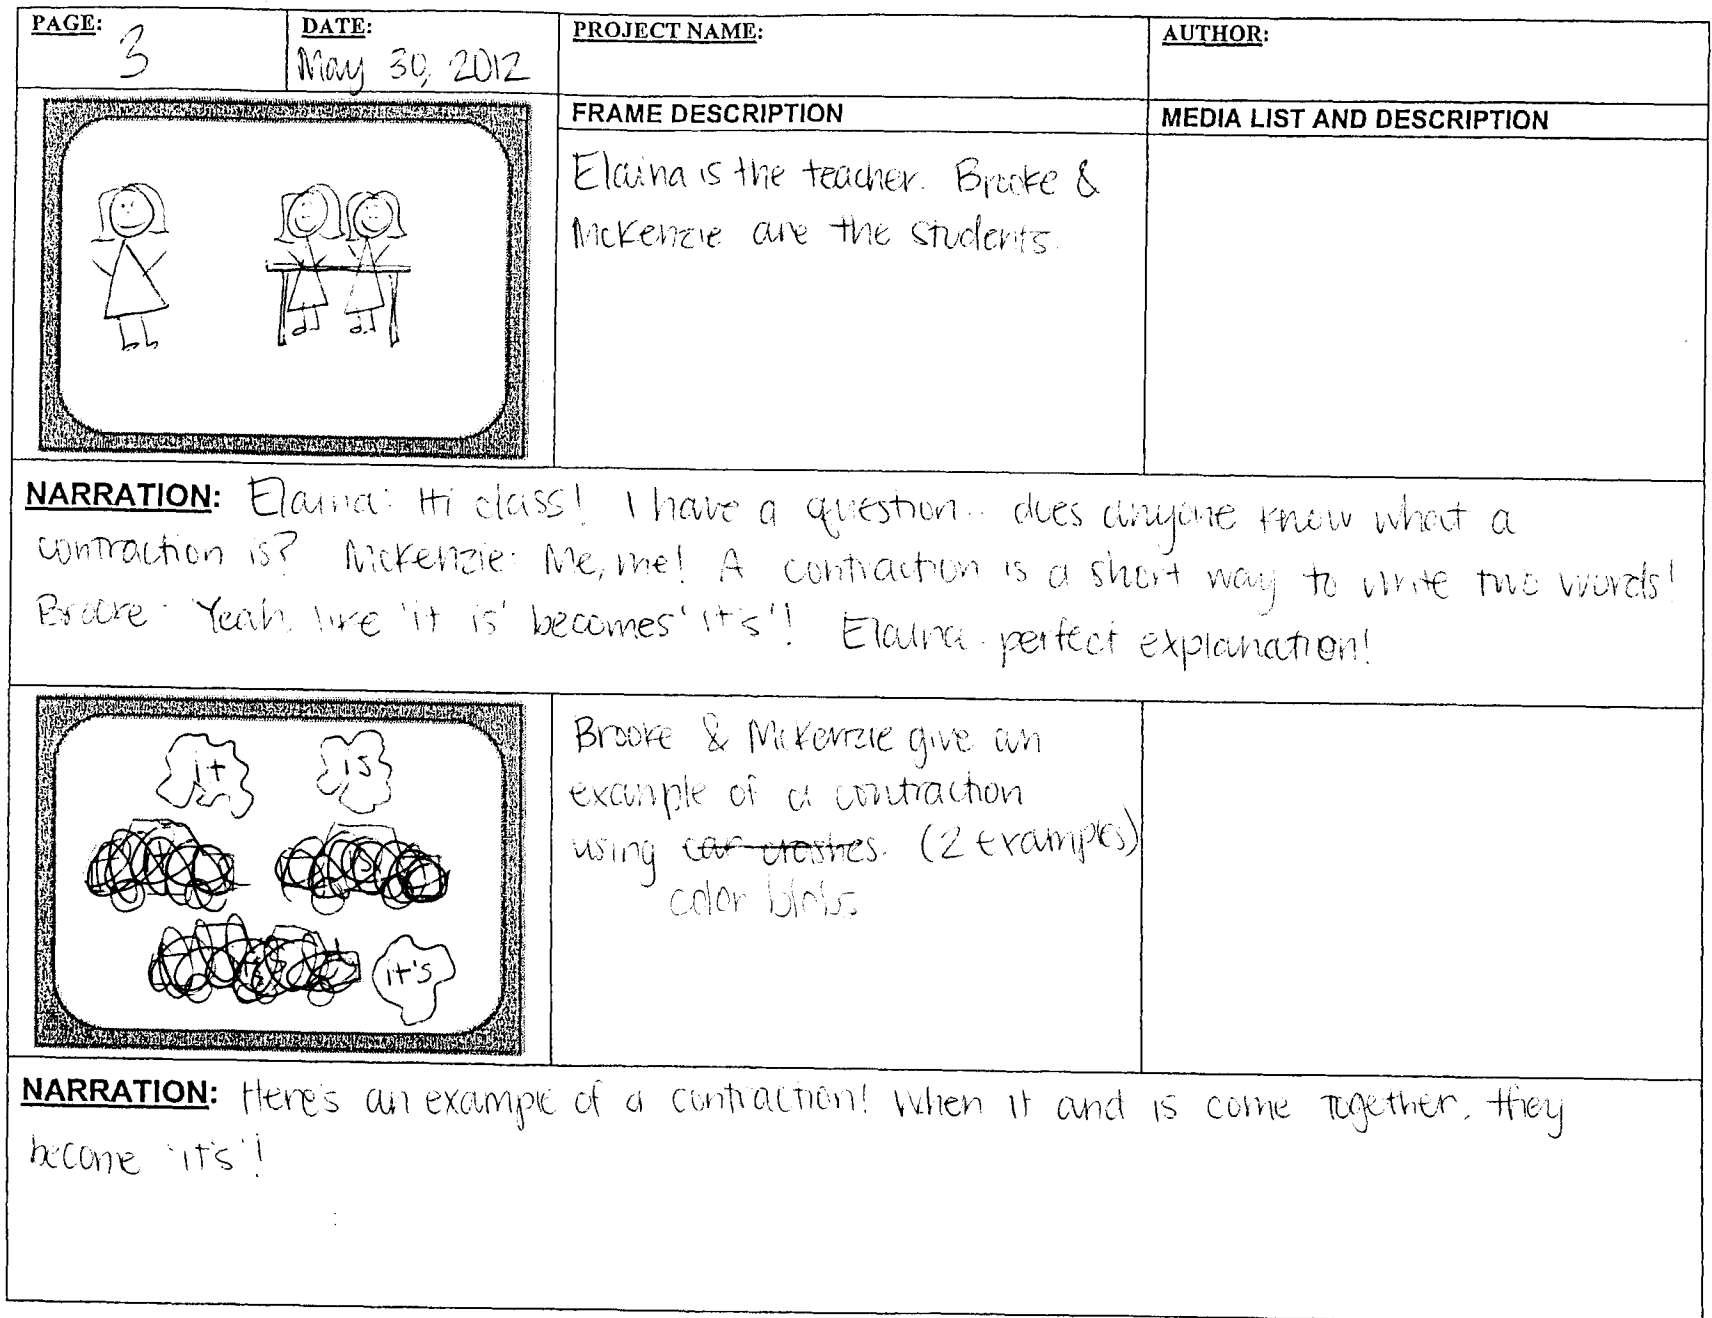 PAGE: 3
DATE: May 30, 2012
PROJECT NAME:
AUTHOR:
FRAME DESCRIPTION
MEDIA LIST AND DESCRIPTION
Elaina is the teacher. Brooke &
McKenzie are the students.
NARRATION: Elaina: Hi class! I have a question... does anyone know what a
contraction is? McKenzie: Me, me! A contraction is a short way to write two words!
Brooke: Yeah, like 'it is' becomes 'it's'! Elaina: perfect explanation!
it is
it's
Brooke & McKenzie give an
example of a contraction
using car crashes. (2 examples)
color blobs
NARRATION: Here's an example of a contraction! When it and is come together, they
become 'it's'!